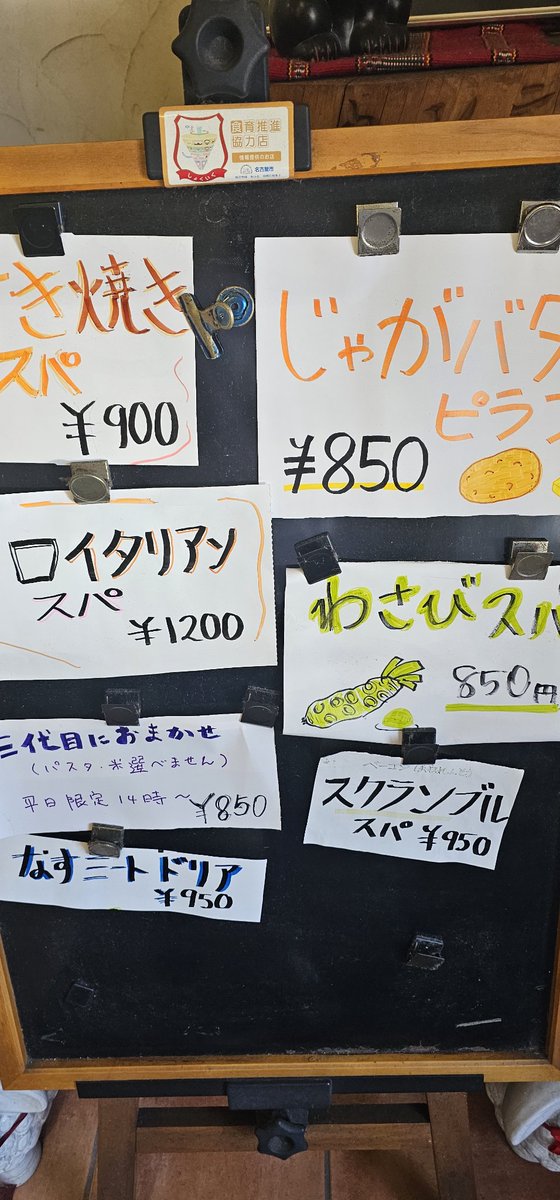 食育推進
協力店
情報提供のお店
名古屋市
しょくいく
き焼き
スパ
¥900
じゃがバタ
ピラフ
¥850
ロイタリアン
スパ
¥1200
わさびスパ
850円
三代目におまかせ
(パスタ・米選べません)
平日限定14時〜¥850
スクランブル
スパ ¥950
なすミートドリア
¥950